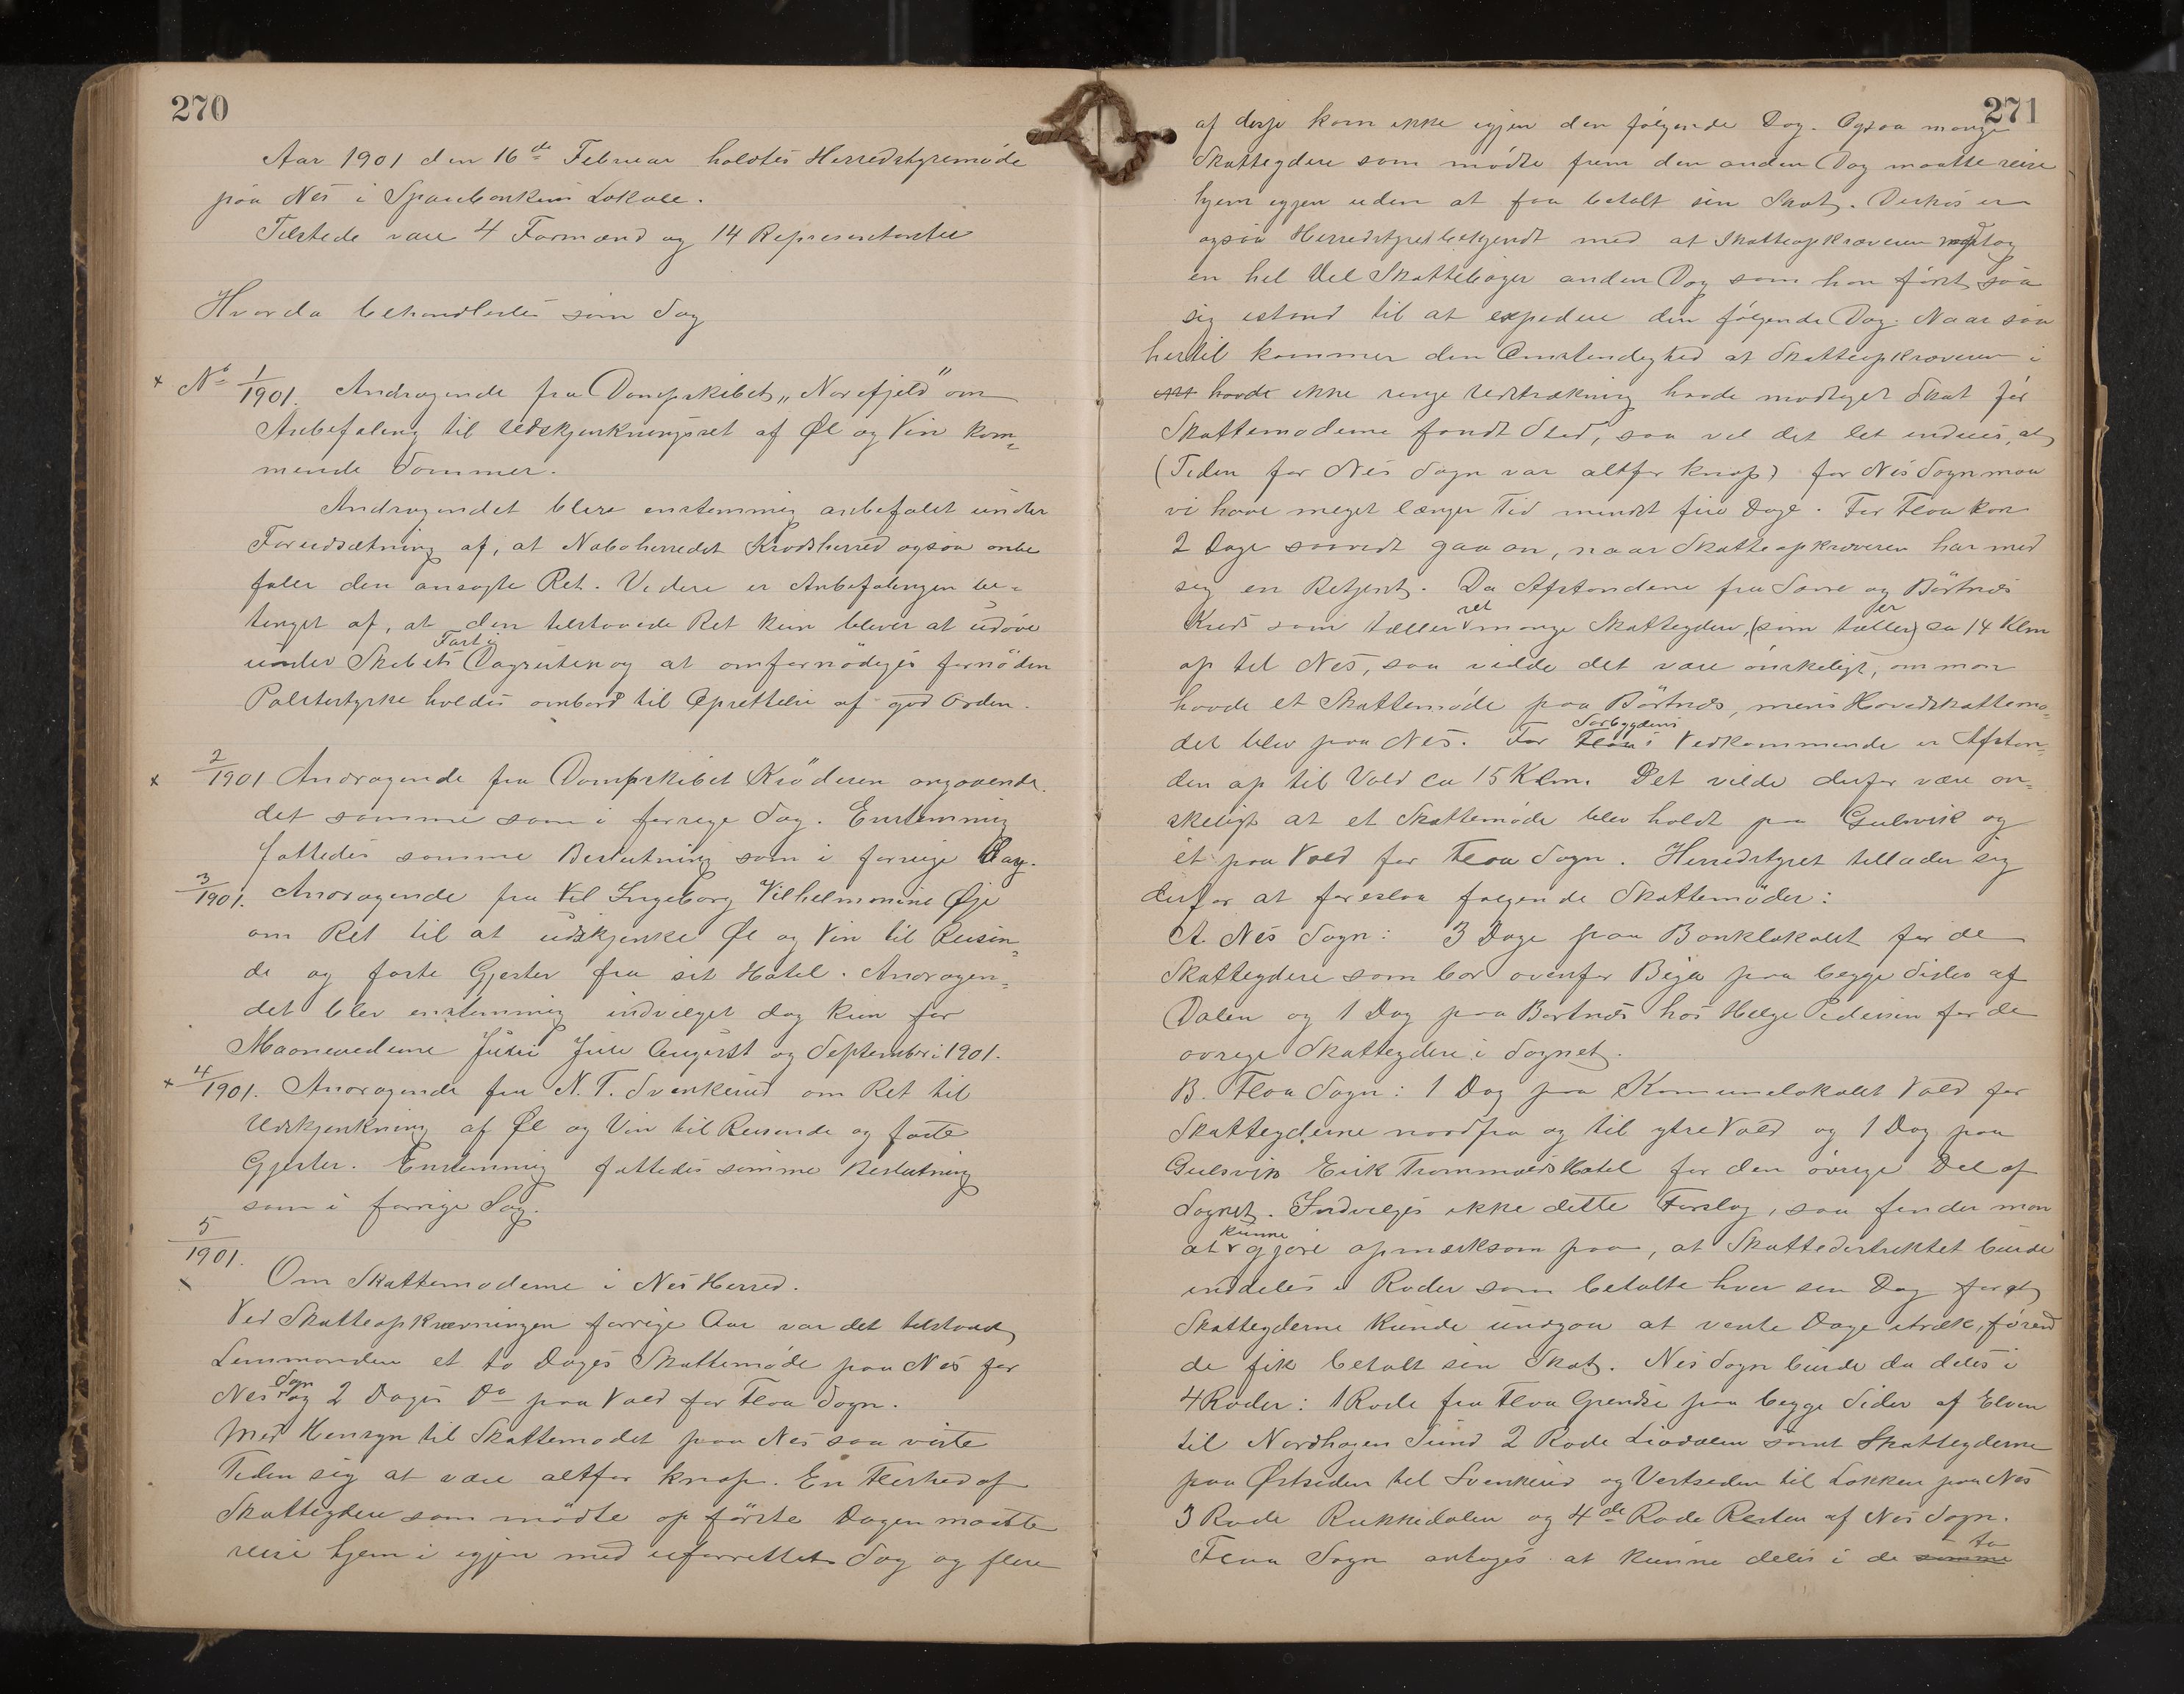 270
Aar 1901 den 16de Februar holdtes Herredstyremøde
paa Nes i Sparebankens Lokale.
Tilstede vare 4 Formænd og 14 Representanter
Hvorda behandledes som Sag
No 1/1901. Andragende fra Dampskibet "Norefjeld" om
Anbefaling til Udskjenkningsret af Øl og Vin kom=
mende Sommer.
Andragendet bleve enstemmig anbefalet under
Forudsætning af, at Naboherredet Krødsherred ogsaa anbe
faler den ansøgte Ret. Videre er Anbefalingen be=
tinget af, at den tilstaaede Ret kun bliver at udøve
under Skibets Fart i Dagruten og at om fornødiges fornøden
Politistyrke holdes ombord til Oprettelse af god Orden.
2/1901 Andragende fra Dampskibet Krøderen angaaende
det samme som i forrige Sag. Enstemmig
fattedes samme Beslutning som i forrige Sag.
3/1901. Andragende fra Ingeborg Vilhelmmine Øje
om Ret til at udskjenke Øl og Vin til Reisen=
de og faste Gjester fra sit Hotel. Andragen=
det blev enstemmig indvilget dog kun for
Maanederne Juni Juli August og September i 1901.
4/1901. Andragende fra N. T. Svenkerud om Ret til
Udskjenkning af Øl og Vin til Reisende og faste
Gjester. Enstemmig fattedes samme Beslutning
som i forrige Sag.
5/1901.
Om Skattemøderne i Nes Herred.
Ved Skatteopkrævningen forrige Aar var det tilstaaet
Lensmanden et to Dages Skattemøde paa Nes for
Nes Sogn og 2 Dages Do paa Vold for Flaa Sogn.
Med Hensyn til Skattemødet paa Nes saa viste
Tiden sig at være altfor knap. En Flerhed af
Skatteydere som mødte op første Dagen maatte
reise hjem i igjen med uforrettet Sag og flere
271
af disse kom ikke igjen den følgende Dag. Ogsaa mange
Skatteydere som mødte frem den anden Dag maatte reise
hjem igjen uden at faa betalt sin Skat. Derhos er
ogsaa Herredstyret bekjendt med at Skatteopkræveren modtog
en hel Del Skattebøger anden Dag som han først saa
sig istand til at expedere den følgende Dag. Naar saa
hertil kommer den Omstendighed at Skatteopkræveren i
havde ikke ringe Udstrækning havde modtaget Skat før
Skattemøderne fandt Sted, saa vil det let indsees, at
(Tiden for Nes Sogn var altfor knap) for Nes Sogn maa
vi have meget længer Tid mindst fire Dage. For Flaa kan
2 Dage saavidt gaa an, naar Skatteopkræveren har med
sig en Betjent. Da Afstandene fra Sørre og Børtnes
Kreds som tæller vel mange Skatteydere, (som tæller) er ca 14 Klm
op til Nes, saa vilde det være ønskeligt, om man
havde et Skattemøde paa Børtnes, mens Hovedskattemø=
det blev paa Nes. For Flaa's Sørbygdens Vedkommende er Afstan=
den op til Vold ca 15 Klm. Det vilde derfor være øn=
skeligt at et Skattemøde blev holdt paa Gulsvik og
et paa Vold for Flaa Sogn. Herredstyret tillader sig
derfor at foreslaa følgende Skattemøder:
A. Nes Sogn: 3 Dage paa Banklokalet for de
Skatteydere som bor ovenfor Beja paa begge Sider af
Dalen og 1 Dag paa Børtnes hos Helge Pedersen for de
øvrige Skatteydere i Sognet.
B. Flaa Sogn: 1 Dag paa Komunelokalet Vold for
Skatteyderne nordfra og til ytre Vold og 1 Dag paa
Gulsvik Erik Trommalds Hotel for den øvrige Del af
Sognet. Indvilges ikke dette Forslag, saa finder man
at kunne gjøre opmærksom paa, at Skattedistriktet burde
inddeles i Roder som betalte hver sin Dag for at
Skatteyderne kunde undgaa at vente Dage itræk, førend
de fik betalt sin Skat. Nes Sogn burde da deles i
4 Roder: 1 Rode fra Flaa Grendse paa begge Sider af Elven
til Nordhagen Sund 2 Rode Liodalen samt Skatteyderne
paa Østsiden til Svenkerud og Vestsiden til Lokken paa Nes
3 Rode Rukkedalen og 4de Rode Resten af Nes Sogn.
Flaa Sogn antages at kunne deles i de samme to